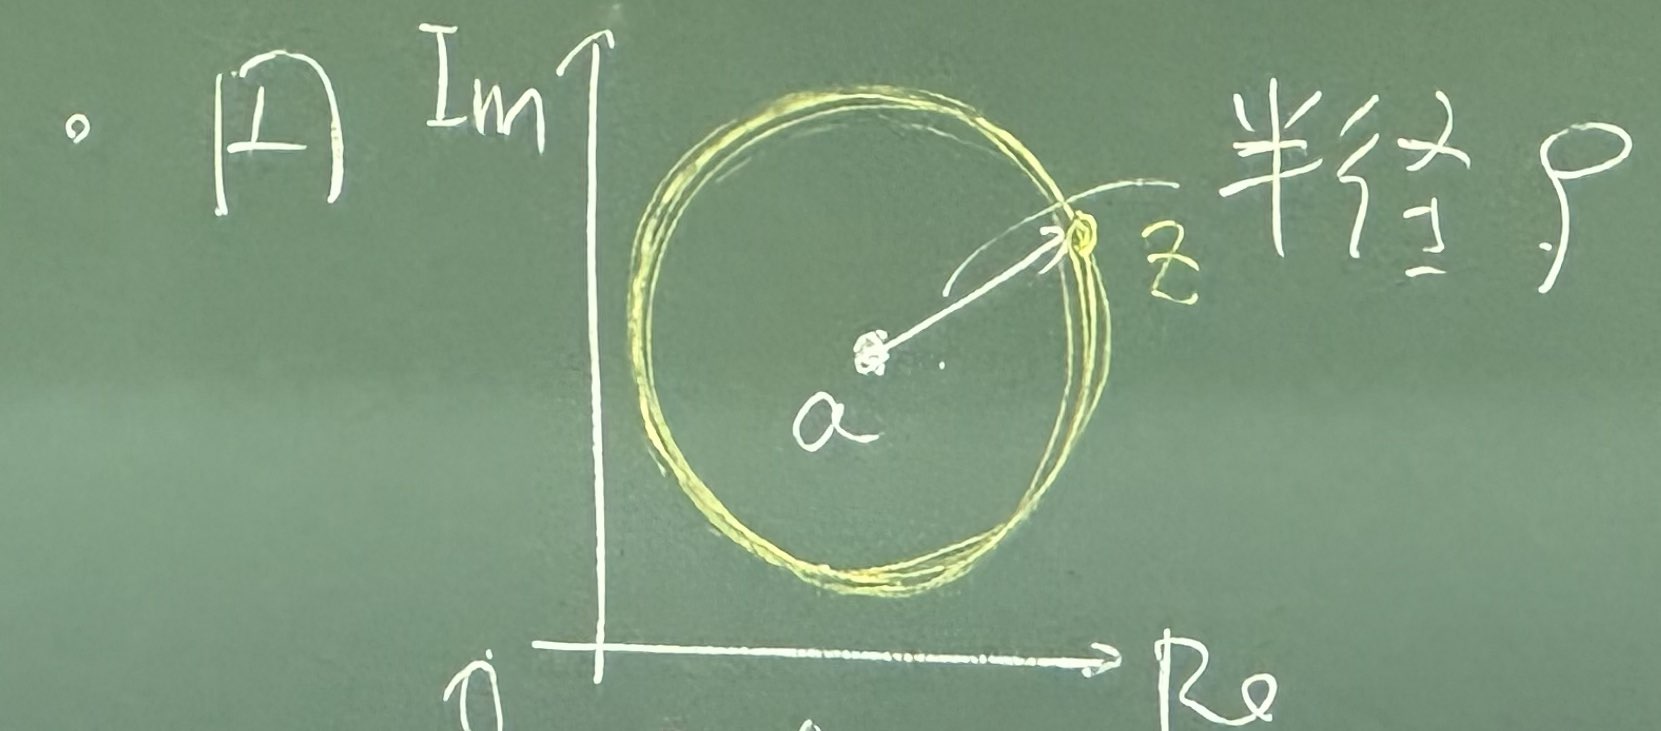 ・円 Im
半径 ρ
z
a
0 Re